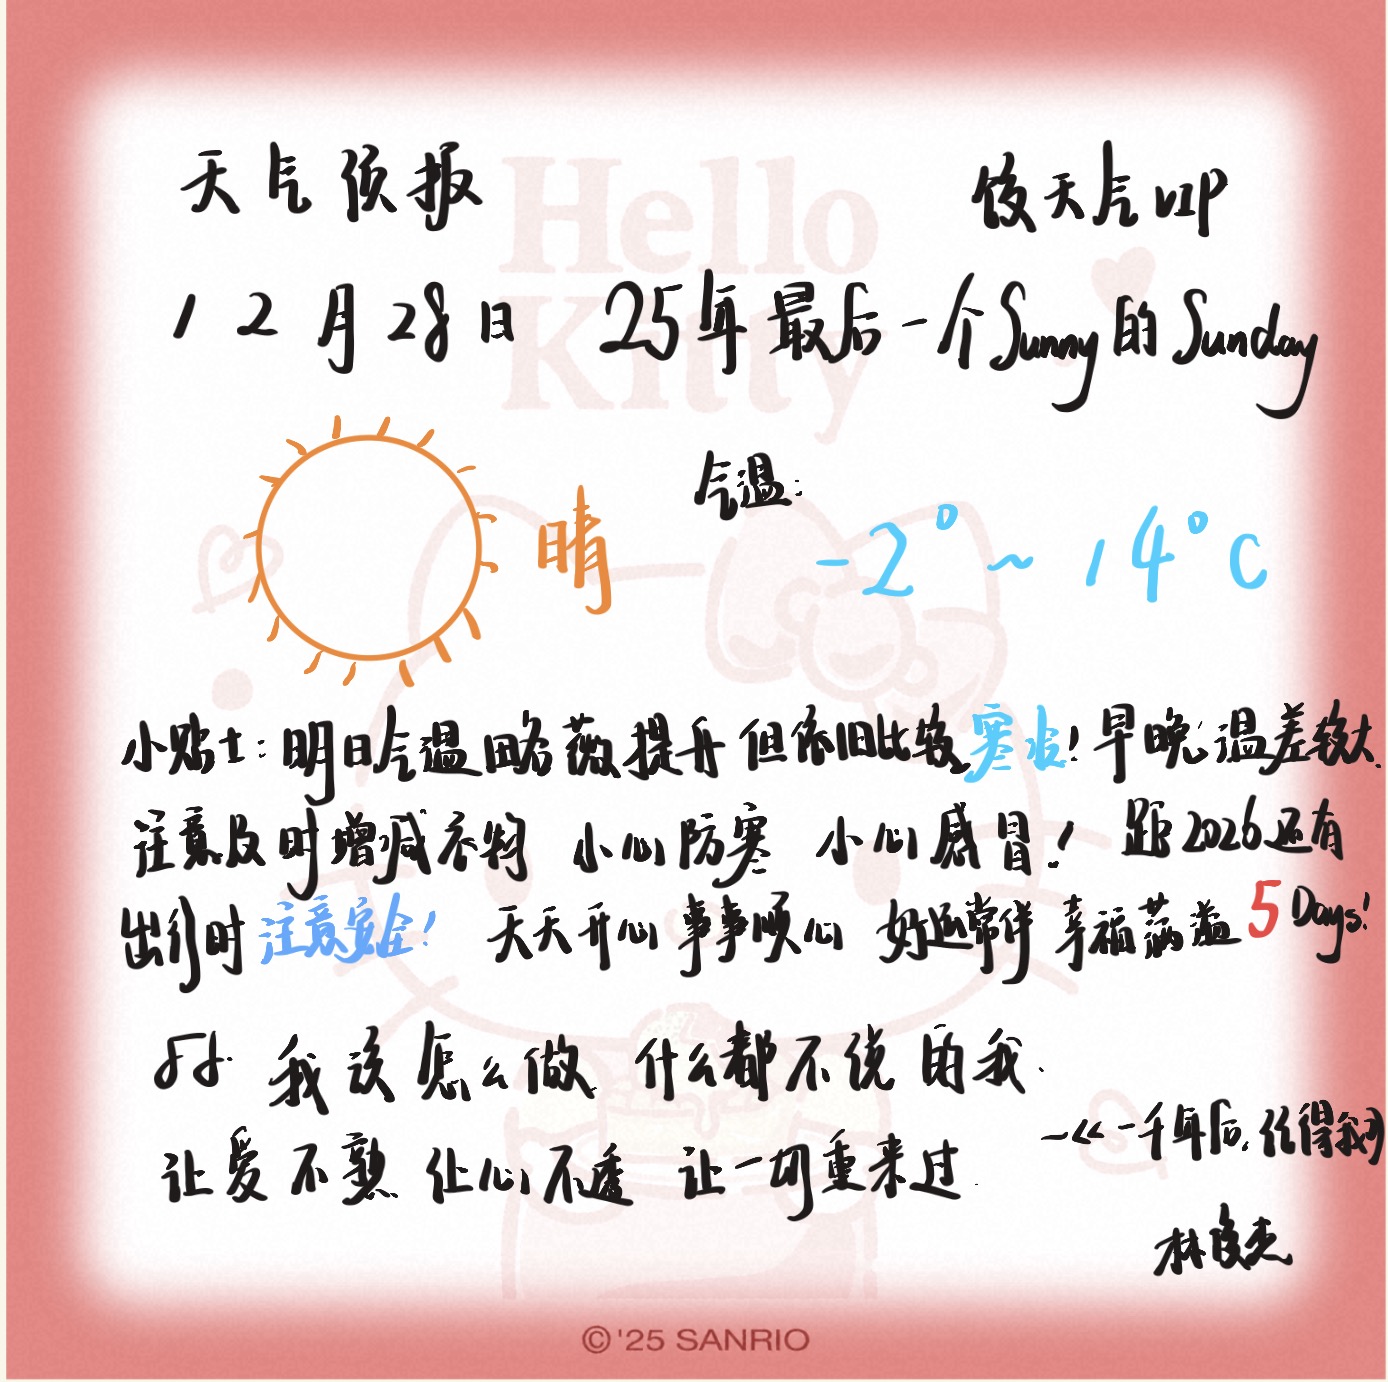 天气预报
Hello Kitty
俊天气VIP
12月28日 25年最后一个Sunny的Sunday
晴
气温:
-2°~14°C
小贴士:明日气温略微提升 但依旧比较寒凉!早晚温差较大.
注意及时增减衣物 小心防寒 小心感冒! 距2026还有
出行时注意安全! 天天开心 事事顺心 好运常伴 幸福满溢 5 Days!
我该怎么做 什么都不说 由我.
让爱不熟 让心不透 让一切重来过.
-《一千年后,记得我》
林俊杰
©'25 SANRIO